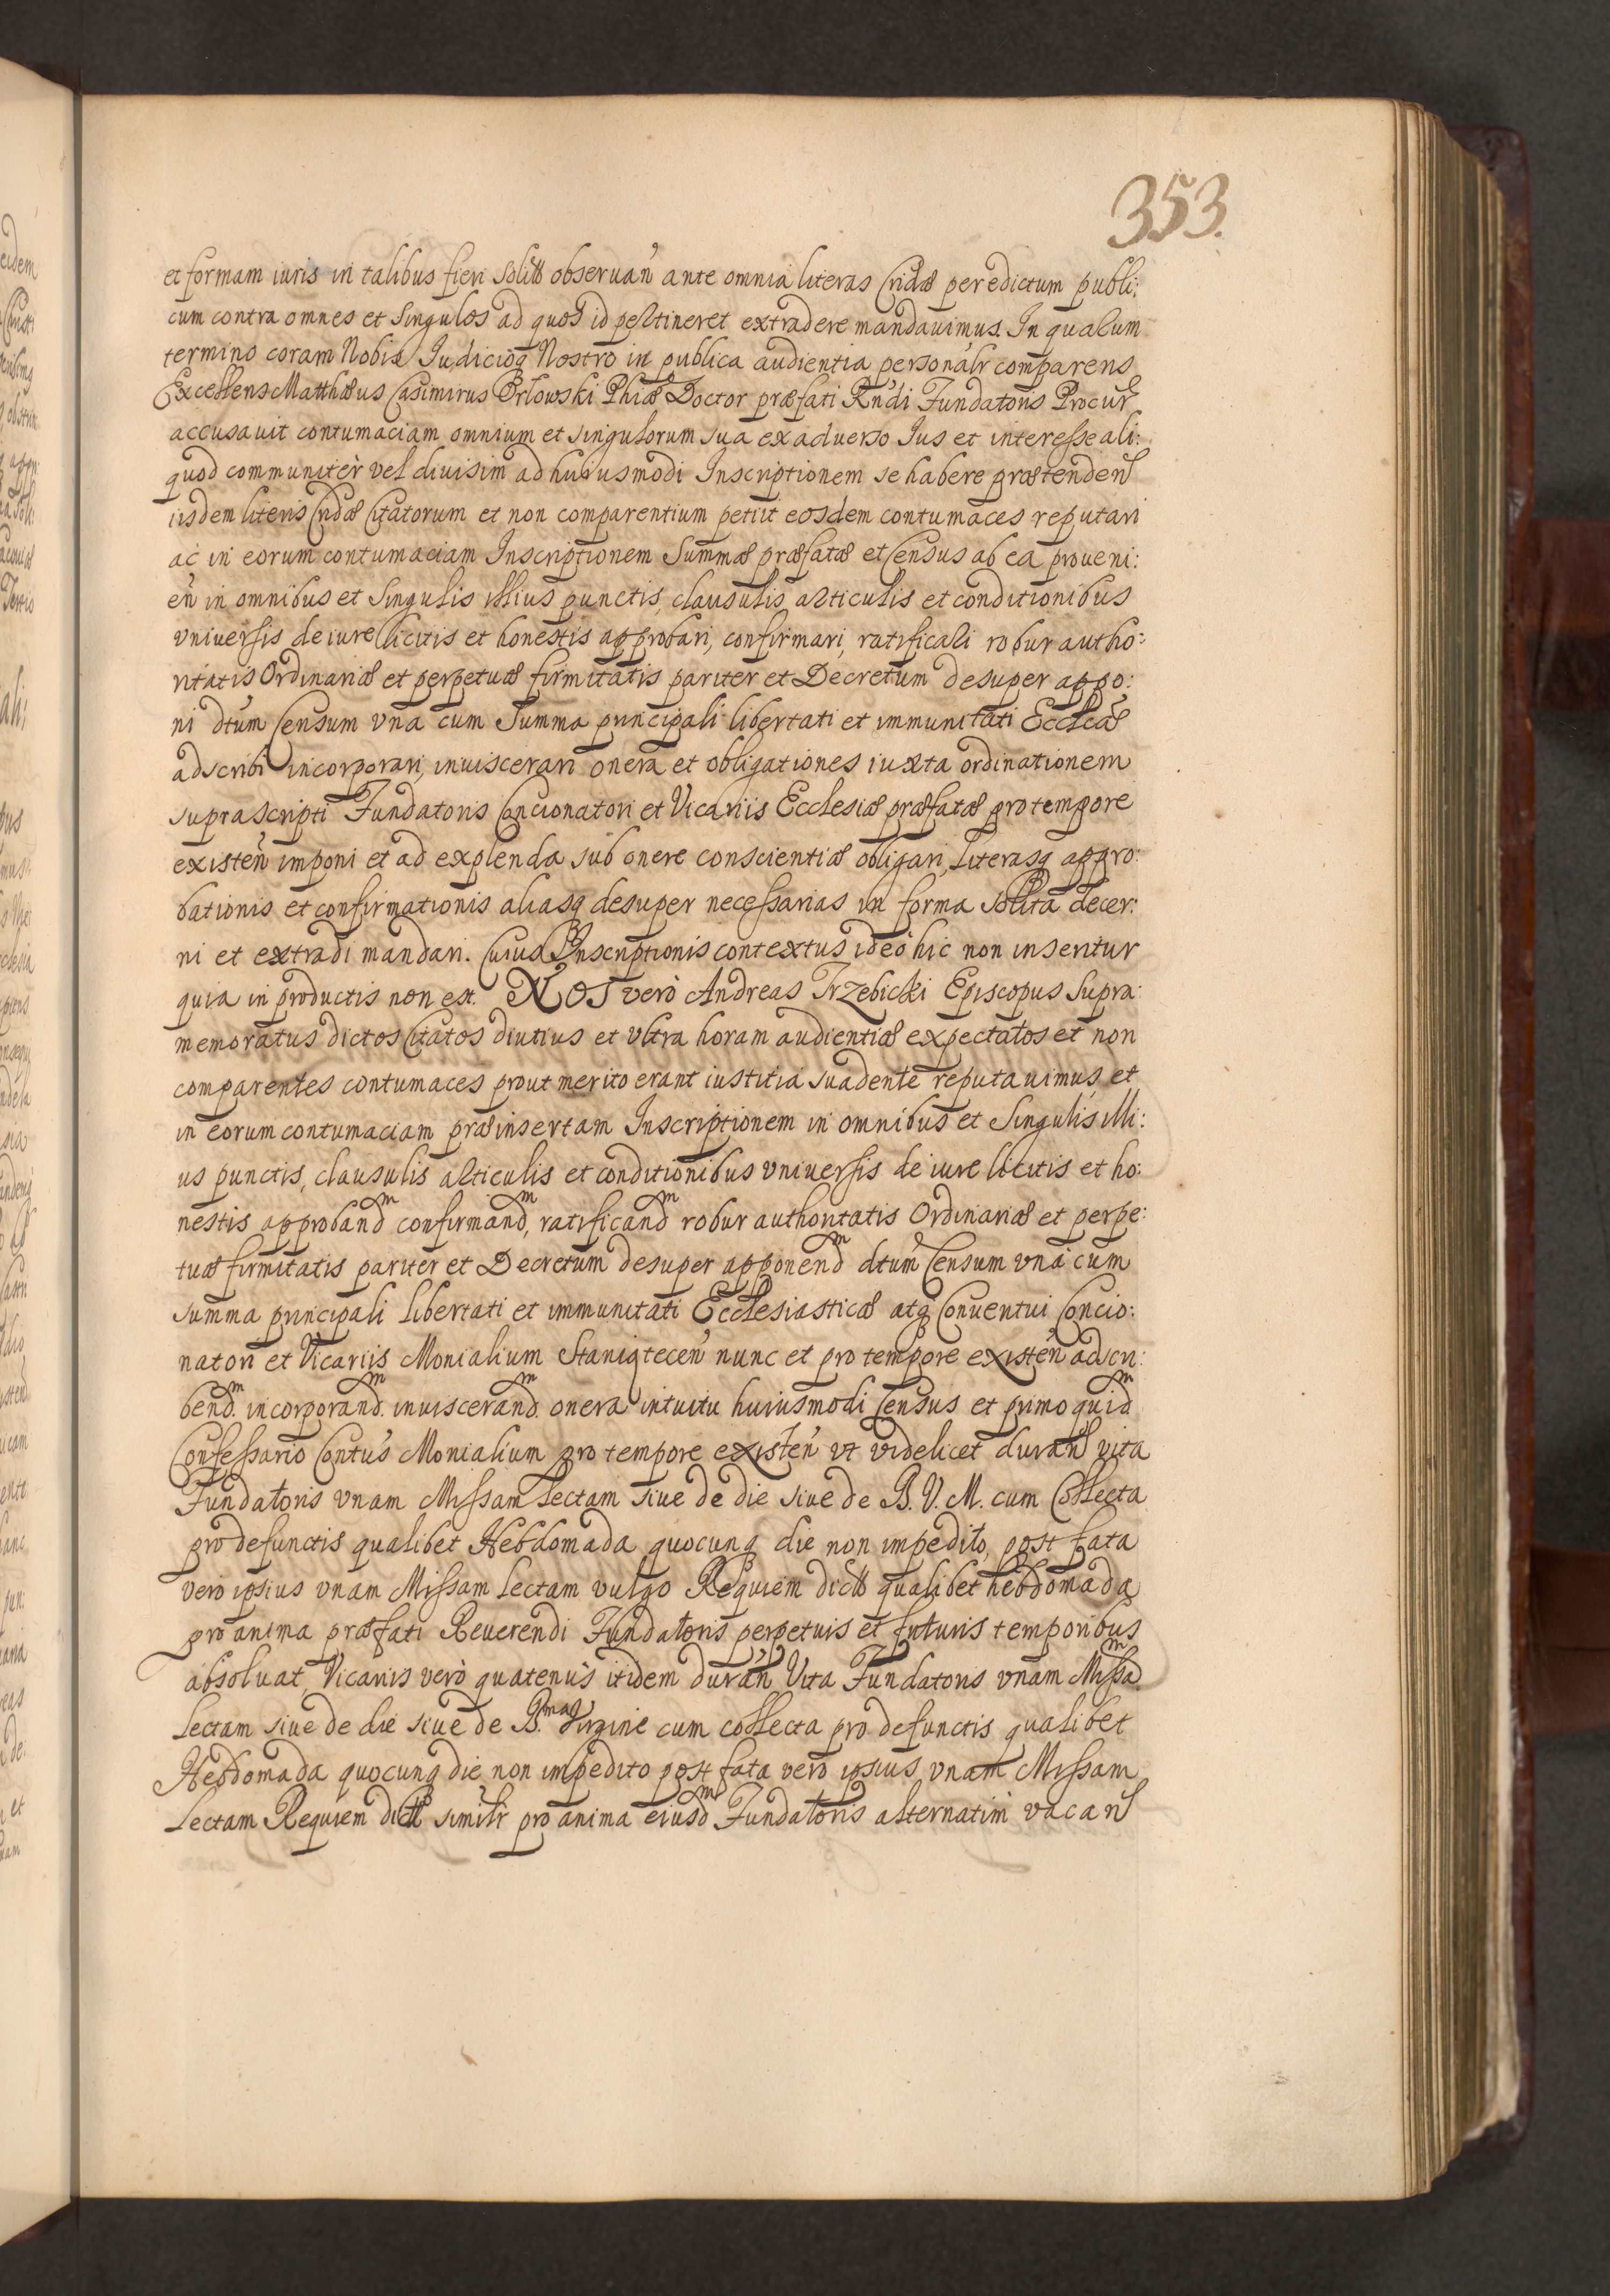 353.
et formam iuris in talibus fieri solitā observan̄ ante omnia literas Cridæ per edictum publi:
cum contra omnes et Singulos ad quos id pertineret extradere mandauimus. In qualum
termino coram Nobis Iudicioq Nostro in publica audientia personalr comparens
Excellens Matthæus Casimirus Orłowski Phiæ Doctor præfati Rndi Fundatoris Procur
accusauit contumaciam omnium et singulorum sua ex aduerso Ius et interesse ali:
quod communitèr vel diuisim ad huiusmodi Inscriptionem se habere prætenden
iisdem literis Cridæ Citatorum et non comparentium petiit eosdem contumaces reputari
ac in eorum contumaciam Inscriptionem Summæ præfatæ et Census ab ea proueni:
en̄ in omnibus et Singulis illius punctis, clausulis, articulis et conditionibus
vniuersis de iure licitis et honestis approbari, confirmari, ratificari robur autho:
ritatis Ordinariæ et perpetuæ firmitatis pariter et Decretum desuper appo:
ni dtum Censum vna cum Summa principali libertati et immunitati Ecclcæ
adscribi incorporari, inuiscerari onera et obligationes iuxta ordinationem
suprascripti Fundatoris Concionatori et Vicariis Ecclesiæ præfatæ pro tempore
existen̄ imponi et ad explenda sub onere conscientiæ obligari, Literasq appro:
bationis et confirmationis aliasq desuper necessarias in forma solita decer:
ni et extradi mandari. Cuius Inscriptionis contextus ideò hic non inseritur
quia in productis non est. NOS verò Andreas Trzebicki Episcopus Supra:
memoratus dictos Citatos diutius et vltra horam audientiæ expectatos et non
comparentes contumaces prout merito erant iustitia suadente reputauimus, et
in eorum contumaciam præinsertam Inscriptionem in omnibus et Singulis illi:
us punctis, clausulis articulis et conditionibus vniuersis de iure licitis et ho:
nestis approbandm confirmandm, ratificandm robur authoritatis Ordinariæ et perpe:
tuæ firmitatis pariter et Decretum desuper apponendm dtum Censum vnà cum
summa principali libertati et immunitati Ecclesiasticæ atq Conuentui Concio:
natori et Vicariis Monialium Staniątecen̄ nunc et pro tempore existen̄ adscri:
bendm. incorporandm. inuiscerandm. onera intuitu huiusmodi Census et primo quidm
Confessario Contus Monialium pro tempore existen̄ vt videlicet duran vita
Fundatoris vnam Missam Lectam siue de die siue de B. V. M. cum Collecta
pro defunctis qualibet Hebdomada quocunq die non impedito, post fata
vero ipsius vnam Missam Lectam vulgo Requiem dictā qualibet hebdomada
pro anima præfati Reuerendi Fundatoris perpetuis et futuris temporibus
absoluat, Vicariis verò quatenus itidem duran̄ Vita Fundatoris vnam Missam
Lectam siue de die siue de B.ma Virgine cum collecta pro defunctis qualibet
Hebdomada quocunq die non impedito post fata vero ipsius vnam Missam
Lectam Requiem dictā similr pro anima eiusdm Fundatoris alternatim vacan